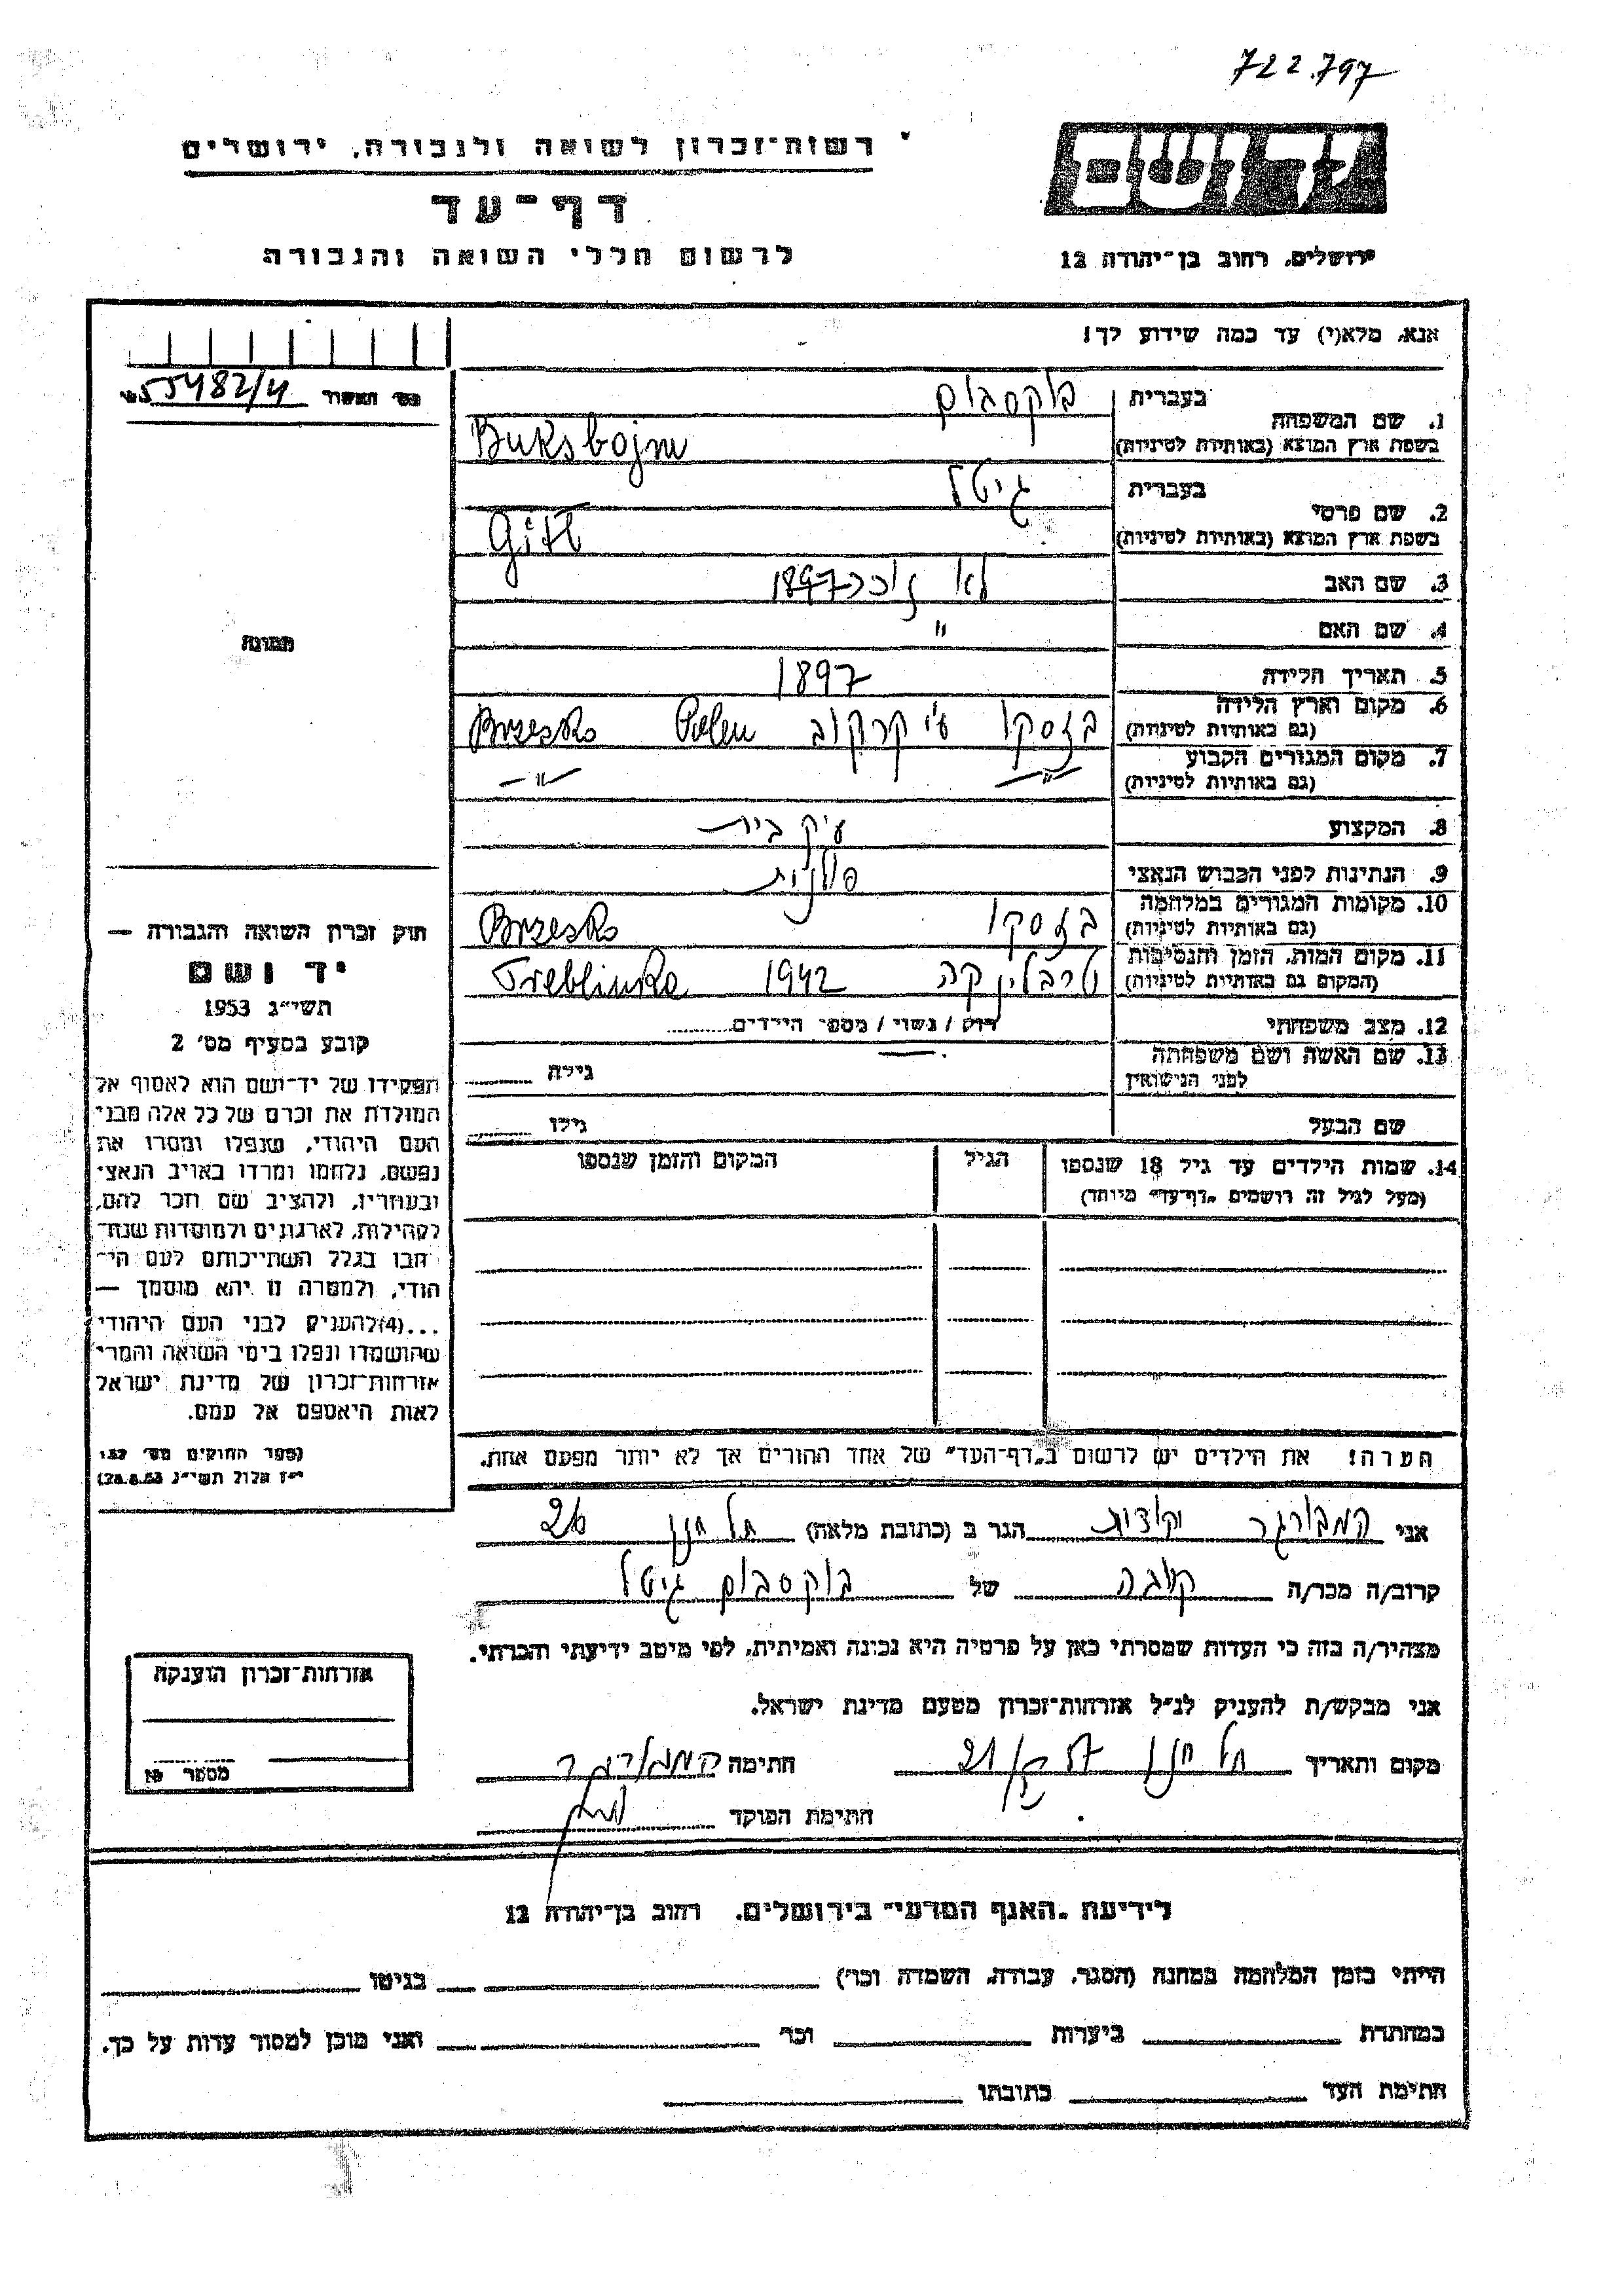 722.797
רשות־זכרון לשואה ולגבורה, ירושלים
דף־עד
לרשום חללי השואה והגבורה
יד ושם
ירושלים, רחוב בן־יהודה 12
אנא, מלא(י) עד כמה שידוע לך!
מס׳ האשור 55482/4
1. שם המשפחה
בעברית בוקסבום
בשפת ארץ המוצא (באותיות לטיניות) Buksbojm
2. שם פרטי
בעברית גיטל
בשפת ארץ המוצא (באותיות לטיניות) Gitl
3. שם האב לא זוכר 1897
4. שם האם "
5. תאריך הלידה 1897
6. מקום וארץ הלידה
(גם באותיות לטיניות) בזסקו ע״י קרקוב Polen Brzesko
7. מקום המגורים הקבוע
(גם באותיות לטיניות) —"— —"—
8. המקצוע עק׳ בית
9. הנתינות לפני הכבוש הנאצי פולנית
10. מקומות המגורים במלחמה
(גם באותיות לטיניות) בזסקו Brzesko
11. מקום המות, הזמן והנסיבות
(המקום גם באותיות לטיניות) טרבלינקה 1942 Treblinka
12. מצב משפחתי רווק / נשוי / מספר הילדים
13. שם האשה ושם משפחתה
לפני הנישואין גילה
שם הבעל גילו
14. שמות הילדים עד גיל 18 שנספו
(מעל לגיל זה רושמים „דף־עד״ מיוחד)
הגיל
המקום והזמן שנספו
הערה! את הילדים יש לרשום ב„דף־העד״ של אחד ההורים אך לא יותר מפעם אחת.
תמונה
חוק זכרון השואה והגבורה —
יד ושם
תשי״ג 1953
קובע בסעיף מס׳ 2
תפקידו של יד־ושם הוא לאסוף אל
המולדת את זכרם של כל אלה מבני
העם היהודי, שנפלו ומסרו את
נפשם, נלחמו ומרדו באויב הנאצי
ובעוזריו, ולהציב שם וזכר להם,
לקהילות, לארגונים ולמוסדות שנח־
רבו בגלל השתייכותם לעם הי־
הודי, ולמטרה זו יהא מוסמך —
...(4) להעניק לבני העם היהודי
שהושמדו ונפלו בימי השואה והמרי
אזרחות־זכרון של מדינת ישראל
לאות היאספם אל עמם.
(ספר החוקים מס׳ 132
י״ז אלול תשי״ג 28.8.53)
אני המבורגר הגר ב (כתובת מלאה) תל חנן 26
קרוב/ה מכר/ה קרובה של בוקסבום גיטל
מצהיר/ה בזה כי העדות שמסרתי כאן על פרטיה היא נכונה ואמיתית, לפי מיטב ידיעתי והכרתי.
אני מבקש/ת להעניק לנ״ל אזרחות־זכרון מטעם מדינת ישראל.
מקום ותאריך תל חנן חתימה המבורגר
חתימת הפוקד
אזרחות־זכרון הוענקה
מספר
לידיעת „האגף המדעי״ בירושלים, רחוב בן־יהודה 12
הייתי בזמן המלחמה במחנה (הסגר, עבודה, השמדה וכו׳) בגיטו
במחתרת ביערות וכו׳ ואני מוכן למסור עדות על כך.
חתימת העד כתובתו